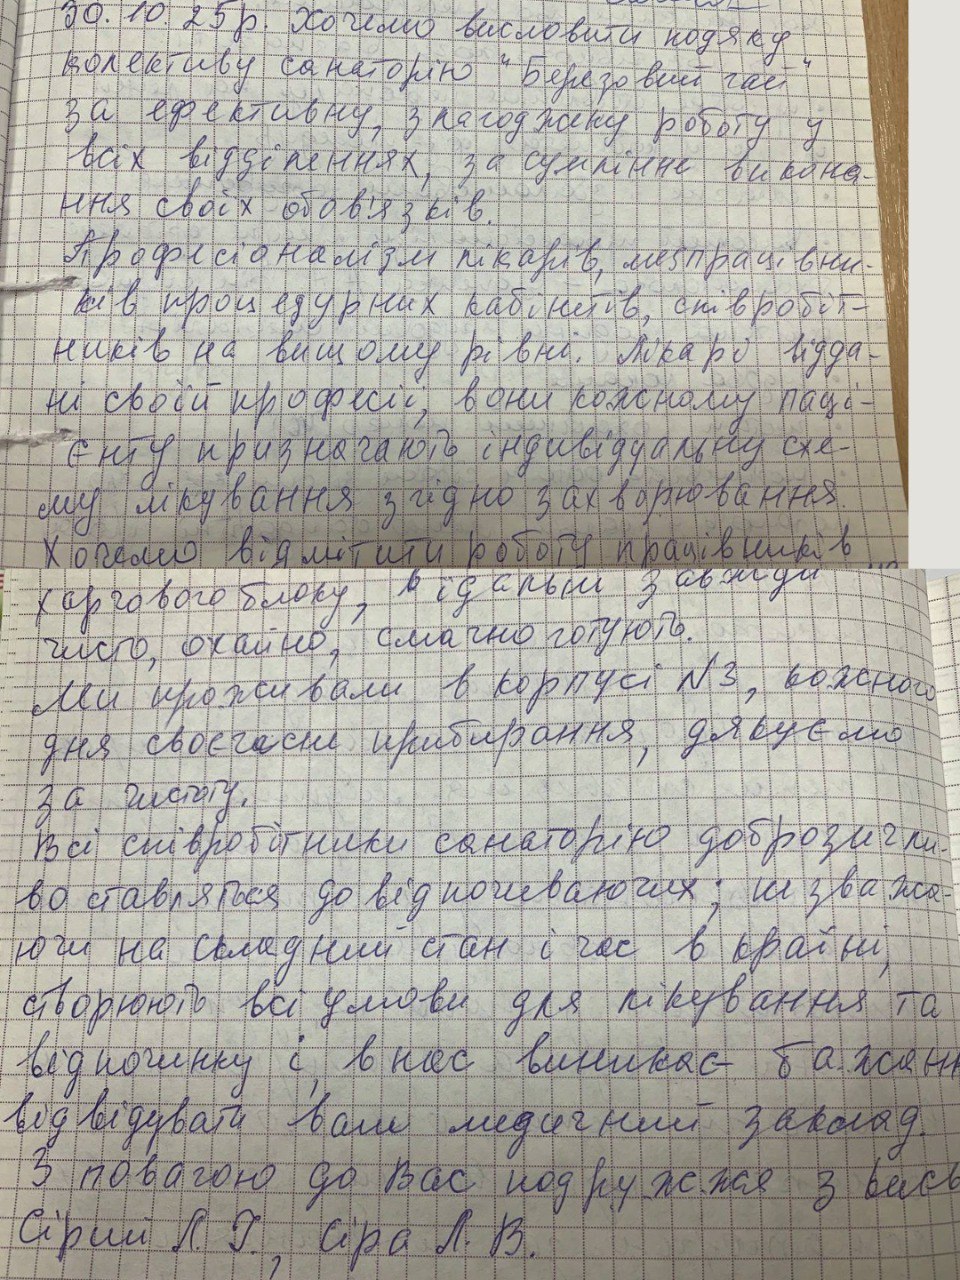 30.10.25р. Хочемо висловити подяку
колективу санаторію "Березовий гай"
за ефективну, злагоджену роботу у
всіх відділеннях, за сумлінне викона-
ння своїх обов'язків.
Професіоналізм лікарів, медпрацівни-
ків процедурних кабінетів, співробіт-
ників на вищому рівні. Лікарі відда-
ні своїй професії, вони кожному паці-
єнту призначають індивідуальну схе-
му лікування згідно захворювання.
Хочемо відмітити роботу працівників
харчового блоку, в їдальні завжди
чисто, охайно, смачно готують.
Ми проживали в корпусі №3, кожного
дня своєчасне прибирання, дякуємо
за чистоту.
Всі співробітники санаторію доброзичли-
во ставляться до відпочиваючих; незважа-
ючи на складний стан і час в країні,
створюють всі умови для лікування та
відпочинку і, в нас виникає бажанн
відвідувати ваш медичний заклад.
З повагою до Вас подружжя з
Сірий Л. Г., Сіра Л. В.